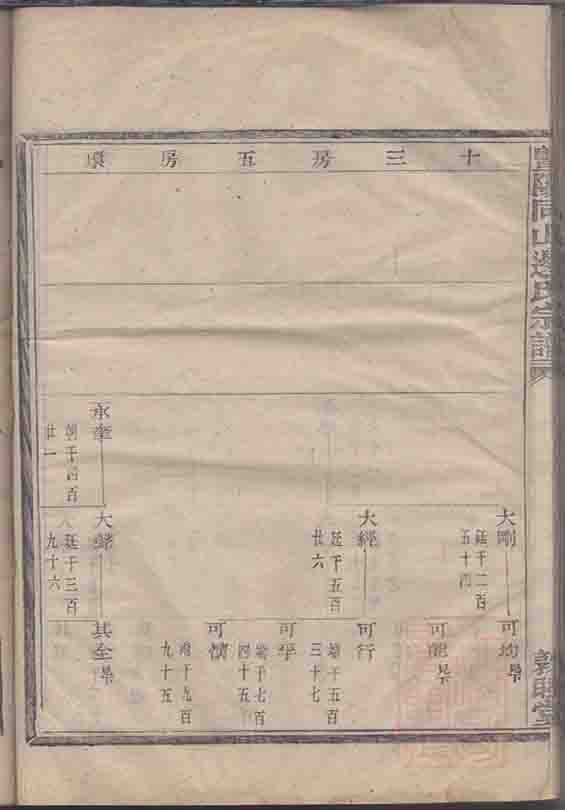 山邊氏宗譜
十三房五房
大剛
廷千二百
五十四
可均
可能
大經
廷千五百
廿六
可行
靖千五百
三十七
可平
靖千七百
四十五
可懷
靖千九百
九十五
永奎
朝千四百
廿一
大
廷千三百
九十六
其全
敦睦堂